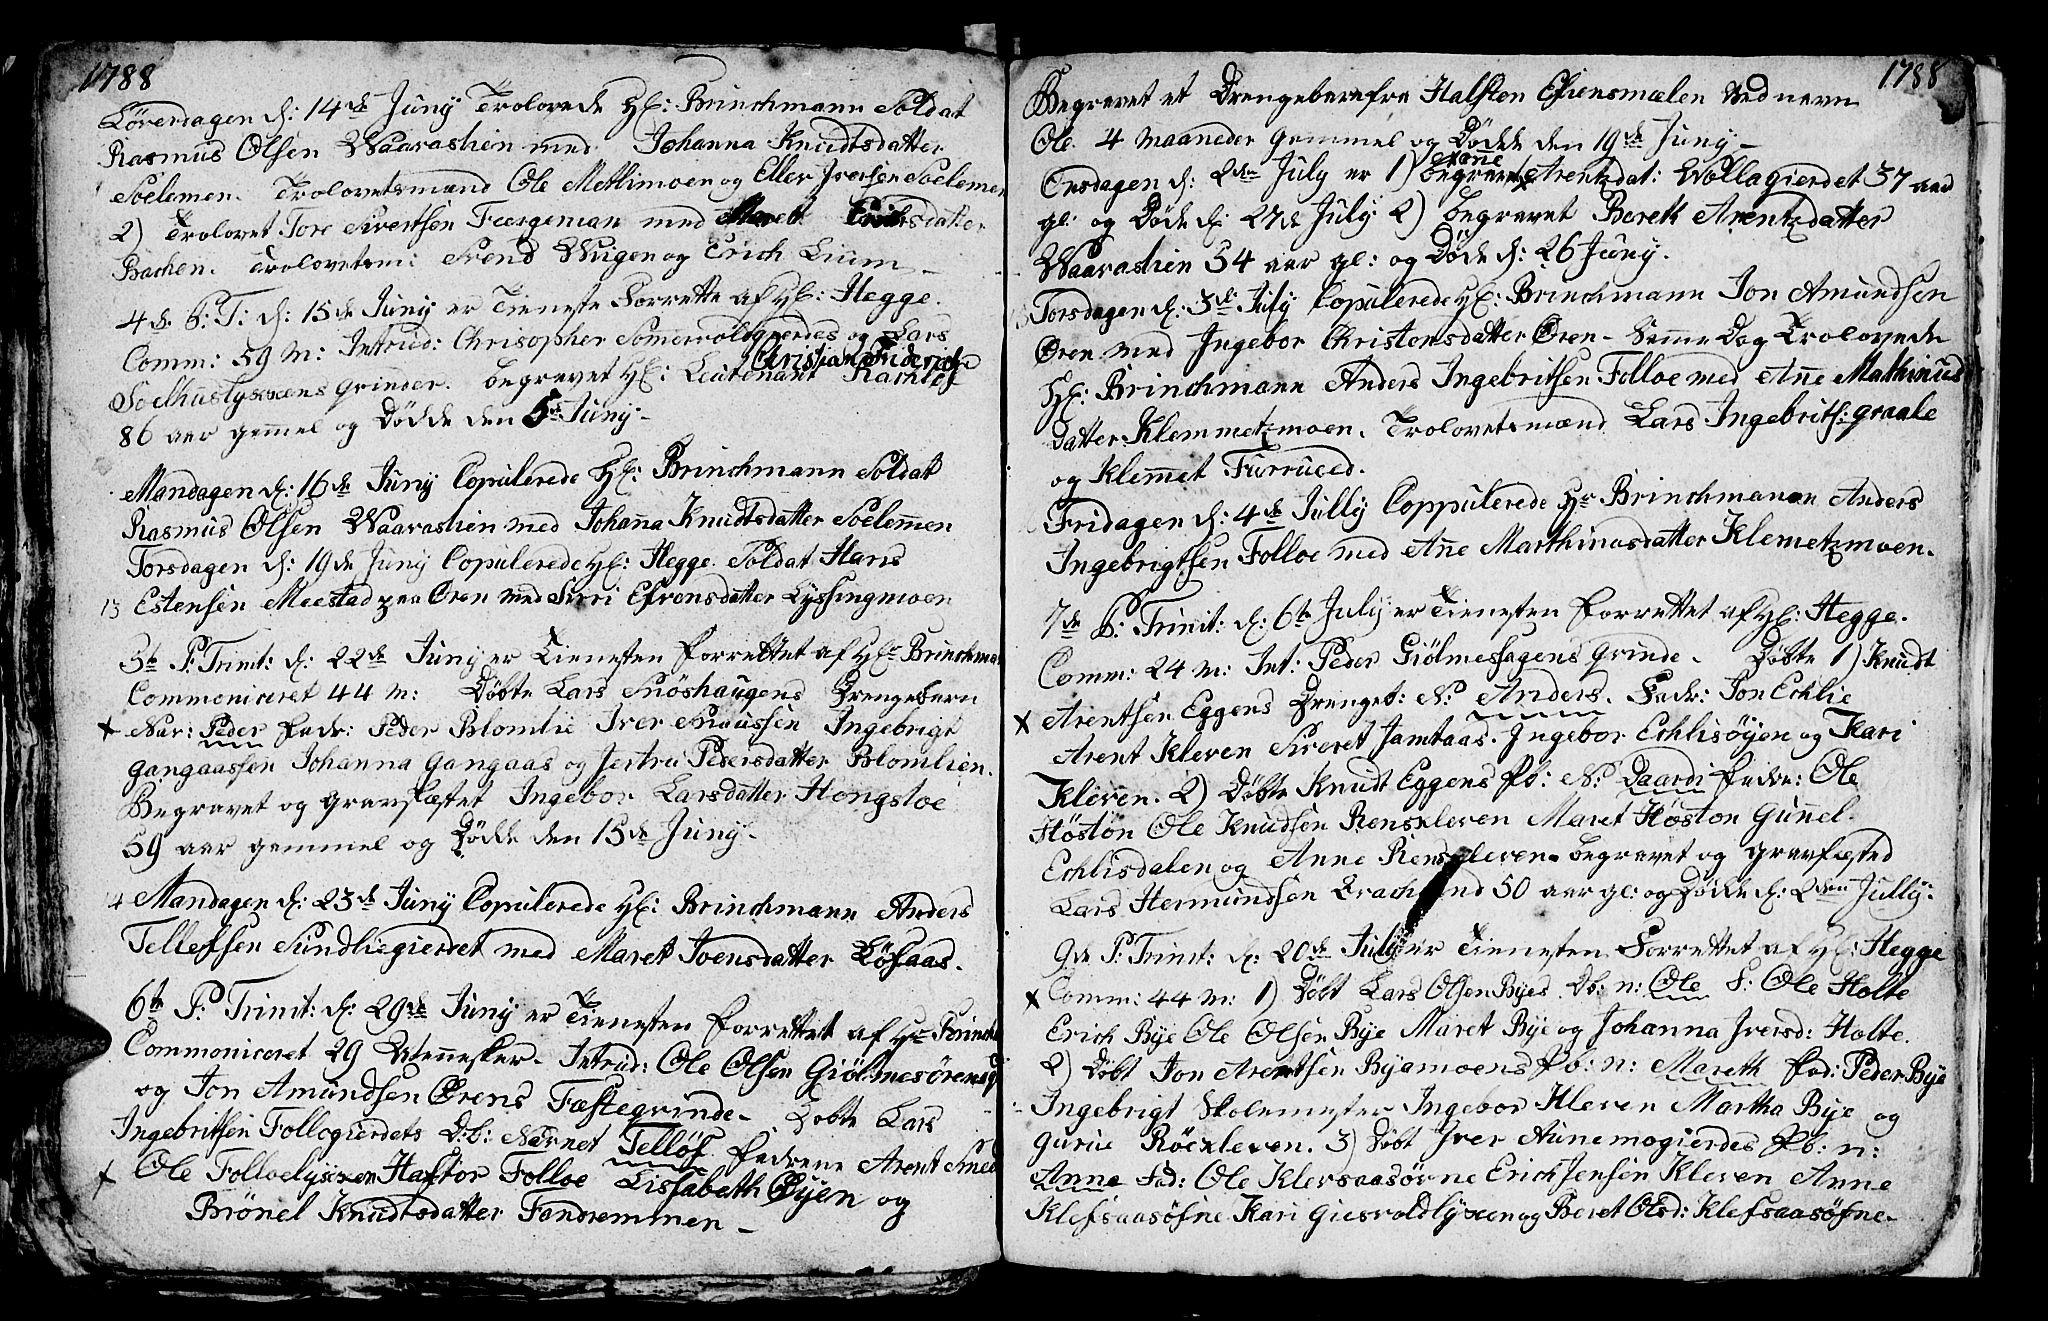 1788
Löverdagen d: 14de Juny Trolovede Hr: Brinchmann Soldat
Rasmus Olsen Waaraslien med Johanna Knudtsdatter
Soelemen. Trolovetsmænd Ole Methimoen og Eller Iversen Soelemen
2) Trolovet Tore Sivertsen Feergeman med Marit Erichsdatter
Bachen. Trolovetsm: Svend Wugen og Erich Lium
4de P: T: d: 15de Juny er Tieneste Forrette af Hr: Hegge.
Comm: 59 M: Introd: Chrisopher Somervoldgierdes og Lars
Soelhuslyxens grinder. begravet Hr: Lieutenant Christian Friderich
86 aar gammel og Dödde den 5de Juny.
Mandagen d: 16de Juny Copulerede Hr: Brinchmann Soldat
Rasmus Olsen Waaraslien med Johanna Knudtsdatter Soelemen
Torsdagen d: 19de Juny Copulerede Hr: Hegge Soldat Hans
13 Estensen Meestad paa Øren med Sirri Efrensdatter Lyssingmoen
P: Trinit: d: 22de Juny er Tienesten forrettet af Hr Brinchman
Commoniceret 44 M: Döbte Lars Snöshaugens Drengebarn
x Nav: Peder Fadr: Peder Blomlie Iver Snaussen Ingebrigt
Gangaassen Johanna Gangaas og Jertru Pedersdatter Blomlien.
Begravet og Gravfæstet Ingebor Larsdatter Hongsloe
59 aar gammel og Dödde den 15de Juny.
14 Mandagen d: 23de Juny Copulerede Hr: Brinchmann Anders
Tellefsen Sundliegierdet med Maret Joensdatter Lösaas.
6te P: Trinit: d: 29de Juny er Tienesten forrettet af Hr Brinchm
Commoniceret 29 Mennesker. Introd: Ole Olsen Giölmesörens
og Jon Amundsen Ørens Fæstegrinde. Döbte Lars
Ingebritsen Follogierdets D.b: Navnet Tellöf Fadrene Arent Smed
x Ole Folloelyxen Haftor Folloe Lissabeth Øyen og
Brönel Knudtsdatter Fandremmen
1788
Begravet et Drengebarn fra Halsten Estensmælen ved navn
Ole 4 Maaneder gammel og Dödde den 19de Juny
Onsdagen d: 2den July er 1) begravet Ane Arentzdat: Wollagierdet 57 aar
gl: og Döde d: 27de July 2) begravet Bereth Arentzdatter
Waaraslien 54 aar gl: og Döde d: 26 Juny.
Torsdagen d: 3de July Copulerede Hr: Brinchmann Jon Amundsen
Øren med Ingebor Christensdatter Øren. Samme Dag Trolovede
Hr: Brinchmann Anders Ingebritsen Folloe med Ane Mathinus
datter Klemmetzmoen. Trolovetsmænd Lars Ingebrits: graale
og Klemet Furrued.
Fridagen d: 4de Jully Coppulerede Hr Brinchmann Anders
Ingebrigtsen Folloe med Ane Marthinusdatter Klemetzmoen.
7de P: Trinit: d: 6te July er Tienesten forrettet af Hr: Hegge.
Comm: 24 M: Int: Peder Giölmessagens grinde. Döbte 1) Knudt
x Arentsen Eggens Drengeb: N: Anders. Fadr: Jon Echlie
Arent Kleven Siveret Jamtaas. Ingebor Echlisöyen og Kari
Kleven. 2) Döbte Knudt Eggens Pb: N: Daardi Fadre: Ole
Höston Ole Knudsen Renskleven Maret Höston Gunnel
Echlisdalen og Anne Renskleven. begravet og Gravfæsted
Lars Hermundsen 50 aar gl: og Dödde d: 2den Jully.
9de P: Trinit: d: 20de July er Tienesten Forrettet af Hr: Hegge
x Comm: 44 M: 1) Döbt Lars Olsen Byes Db: n: Ole F: Ole Holte
Erich Bye Ole Olsen Bye Maret Bye og Johanna Iversd: Holte.
2) Döbt Jon Arentsen Byamoens Pb: n: Mareth Fad: Peder Bye
Ingebrigt Skolemester Ingebor Kleven Martha Bye og
Gurue Röexleven. 3) Döbt Iver Aunemogierdes Pb: n:
Anne Fad: Ole Klefsaasörne Erich Jensen Kleven Anne
Klefsaasöfne Kari Giesvoldlyxen og Beret Olsd: Klefsaasöfne.